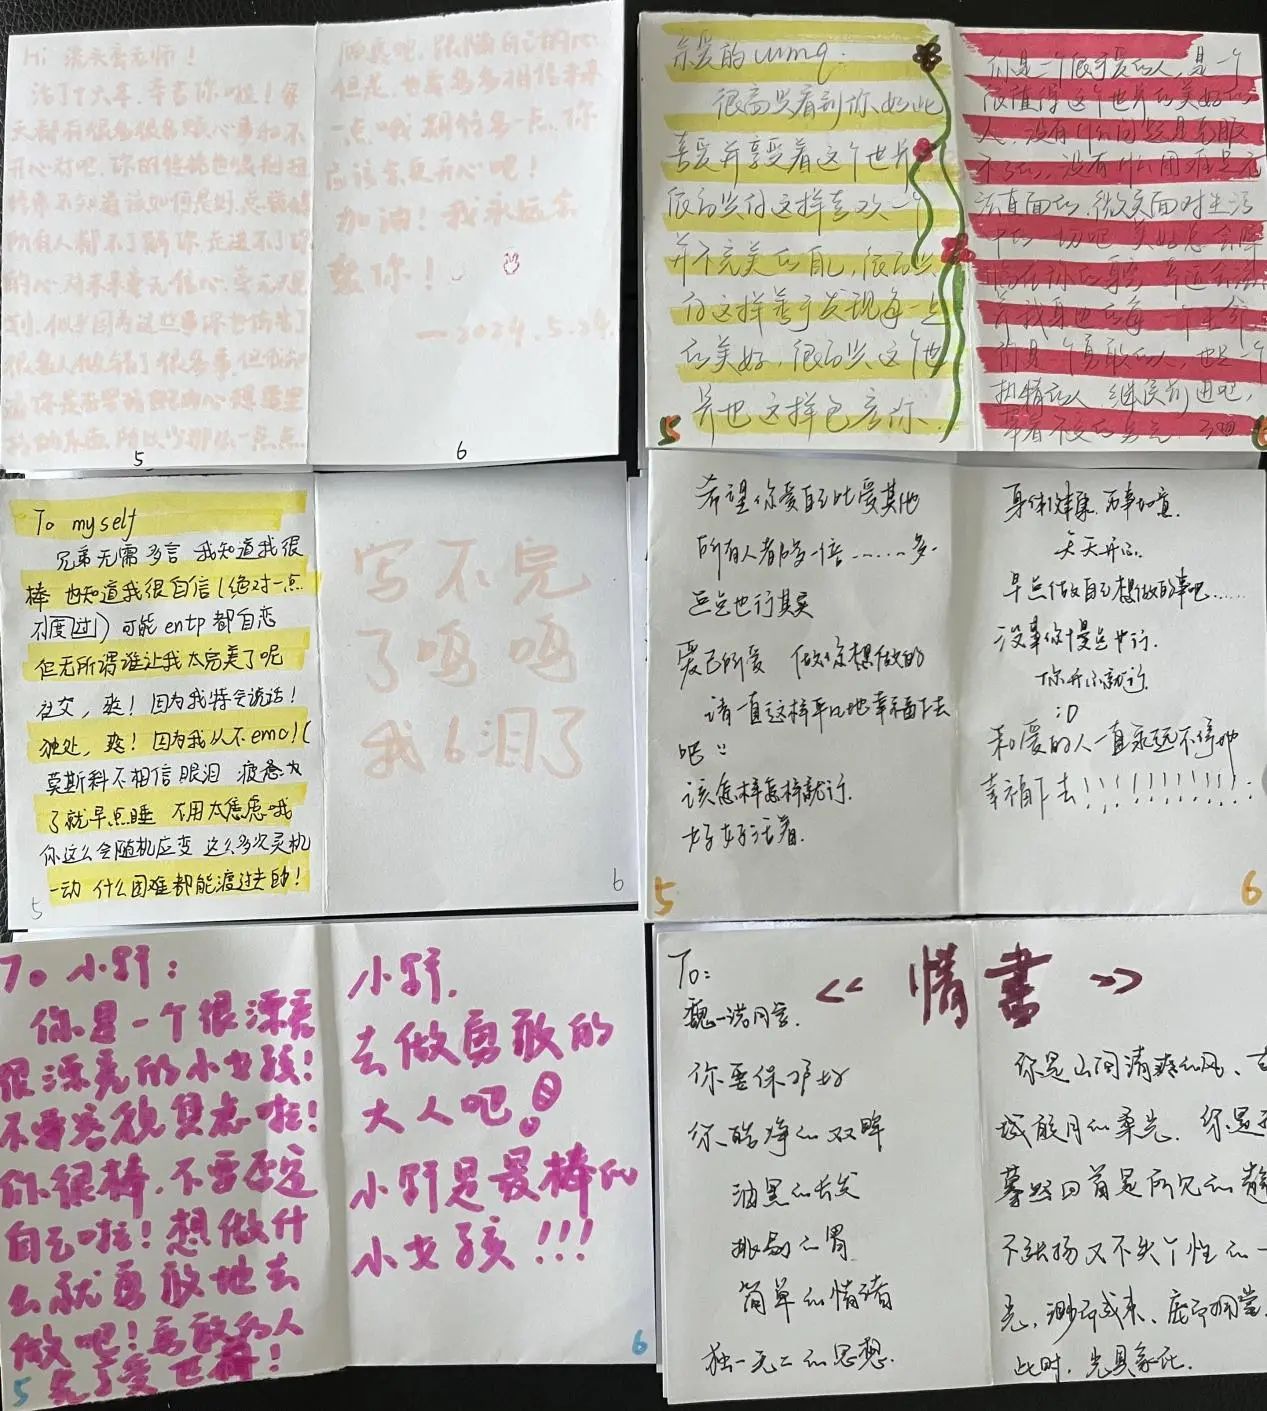 Hi
活了十六年，辛苦你啦！每
天都有很多很多烦心事和不
开心对吧，你的性格也
所有人都不了解你走进不了你
的心，对未来毫无信心，毫无规
划，似乎因为这些事你也伤害了
很多人做错了很多事，但我知
5
但是，也要多多相信未来
一点哦，期待多一点，你
应该会更开心吧！
加油！我永远会
爱你！
—2024.5.24.
6
亲爱的
很高兴看到你如此
喜爱并享受着这个世界
很高兴你这样喜欢一个
并不完美的自己，很高兴
你这样善于发现每一些
的美好，很高兴这个世
界也这样包容你
5
你是一个很可爱的人，是一个
很值得这个世界的美好的
人，没有什么问题是克服
不了的，没有什么困难是无
法直面的，微笑面对生活
中的一切吧 美好总会降
临在你的身旁 幸运会滋
养我身边的每一个生命
你是一个勇敢的人，也是一个
热情的人 继续前进吧，
带着不变的勇气
6
To myself
兄弟无需多言 我知道我很
棒 也知道我很自信(绝对一点
不過过) 可能entp都自恋
但无所谓谁让我太完美了呢
社交，爽！因为我特会说话！
独处，爽！因为我从不emo!(
莫斯科不相信眼泪 疲惫
了就早点睡 不用太焦虑哦
你这么会随机应变 这么多次灵机
一动 什么困难都能渡过去的！
5
写不完
了呜呜
我6泪了
6
希望你爱自己比爱其他
所有人都多一倍……多。
逗逗也行其实
爱己所爱 做你想做的
请一直这样平凡地幸福下去
吧
该怎样怎样就行.
好好活着.
5
身体健康，万事如意.
天天开心.
早点做自己想做的事吧……
没事你慢点也行.
你开心就行.
:D
和爱的人一直永远不停地
幸福下去!!!!!!!!!!!
6
To 小野：
你是一个很漂亮
很漂亮的小女孩！
不要容貌焦虑啦！
你很棒，不要否定
自己啦！想做什
么就勇敢地去
做吧！勇敢的人
先享受世界！
5
小野，
去做勇敢的
大人吧！
小野是最棒的
小女孩！！！
6
<< 情书 >>
To:
魏一诺同学.
你要保护好
你皓净的双眸
油黑的长发
挑剔的胃
简单的情绪
独一无二的思想.
你是山间清爽的风、古
城皎月的柔光. 你是
暮然回首是所见的
不张扬又不失个性的一
光，
此时，